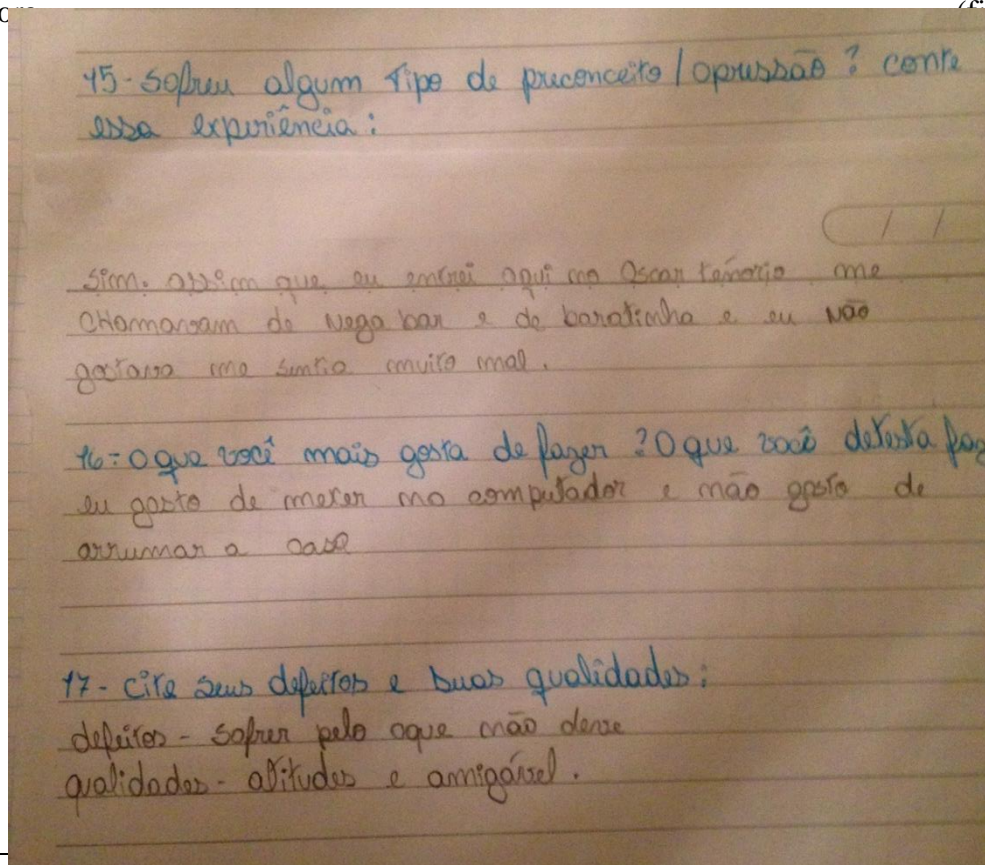 15- Sofreu algum tipo de preconceito/opressão? conte
essa experiência:
sim. assim que eu entrei aqui no Oscar tenório me
CHamavam de nega bar e de baratinha e eu não
gostava me sentia muito mal.
16- O que você mais gosta de fazer? O que você detesta faz
eu gosto de mexer no computador e não gosto de
arrumar a casa
17- Cite seus defeitos e suas qualidades:
defeitos - sofrer pelo oque não deve
qualidades - atitudes e amigável.